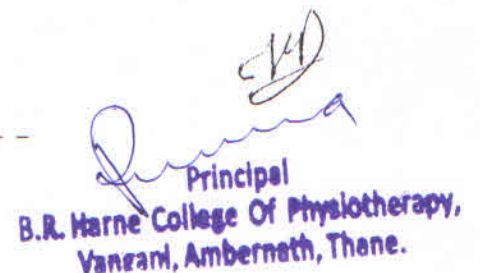 Principal
B.R. Harne College Of Physiotherapy,
Vangani, Ambernath, Thane.